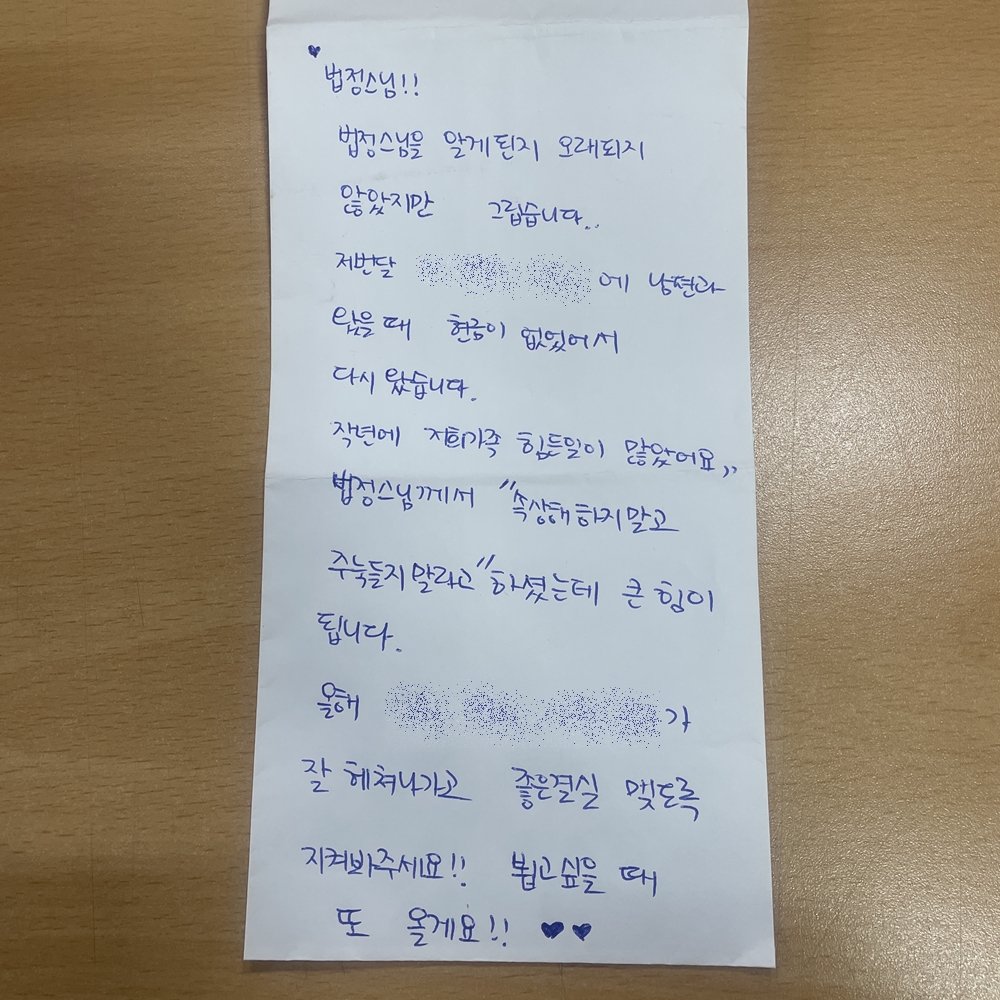 ♥
법정스님!!
법정스님을 알게된지 오래되지
않았지만 그립습니다..
저번달 에 남편과
왔을때 현금이 없었어서
다시 왔습니다.
작년에 저희가족 힘든일이 많았어요,,
법정스님께서 "속상해하지말고
주눅들지말라고" 하셨는데 큰 힘이
됩니다.
올해 가
잘 헤쳐나가고 좋은결실 맺도록
지켜봐주세요!! 뵙고싶을 때
또 올게요!! ♥♥